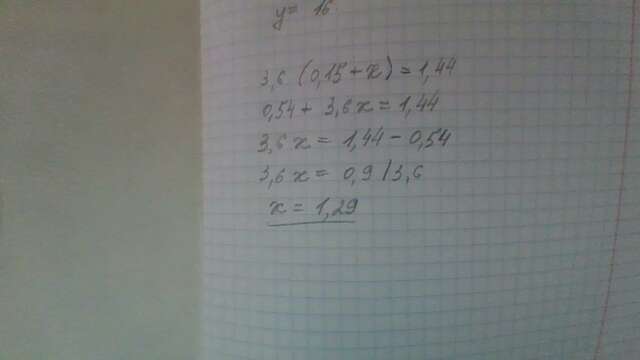 y = 16
3,6 (0,15 + x) = 1,44
0,54 + 3,6 x = 1,44
3,6 x = 1,44 - 0,54
3,6 x = 0,9 / 3,6
x = 1,29